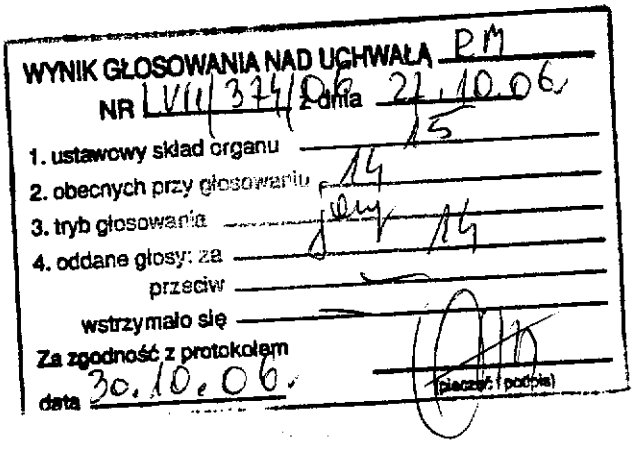 WYNIK GŁOSOWANIA NAD UCHWAŁĄ RM
NR LVII/374/06 z dnia 27.10.06.
1. ustawowy skład organu 15
2. obecnych przy głosowaniu 14
3. tryb głosowania jawny
4. oddane głosy: za 14
przeciw —
wstrzymało się —
Za zgodność z protokołem
data 30.10.06.
(pieczęć i podpis)